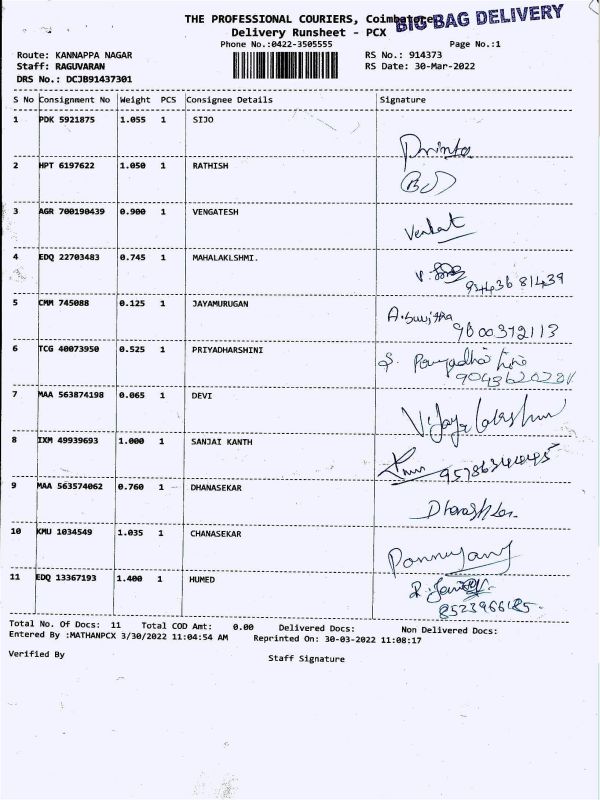 THE PROFESSIONAL COURIERS, Coimbatore
BIG BAG DELIVERY
Delivery Runsheet - PCX
Phone No.:0422-3505555
Page No.:1
Route: KANNAPPA NAGAR
RS No.: 914373
Staff: RAGUVARAN
RS Date: 30-Mar-2022
DRS No.: DCJB91437301
S No Consignment No Weight PCS Consignee Details Signature
1 PDK 5921875 1.055 1 SIJO
2 HPT 6197622 1.050 1 RATHISH
3 AGR 700190439 0.900 1 VENGATESH
Venkat
4 EDQ 22703483 0.745 1 MAHALAKLSHMI.
9443681439
5 CMM 745088 0.125 1 JAYAMURUGAN
A.Sujitha
9600372113
6 TCG 40073950 0.525 1 PRIYADHARSHINI
7 MAA 563874198 0.065 1 DEVI
Vijayalakshmi
8 IXM 49939693 1.000 1 SANJAI KANTH
9 MAA 563574062 0.760 1 DHANASEKAR
10 KMU 1034549 1.035 1 CHANASEKAR
11 EDQ 13367193 1.400 1 HUMED
8523966485
Total No. Of Docs: 11 Total COD Amt: 0.00 Delivered Docs: Non Delivered Docs:
Entered By :MATHANPCX 3/30/2022 11:04:54 AM Reprinted On: 30-03-2022 11:08:17
Verified By
Staff Signature